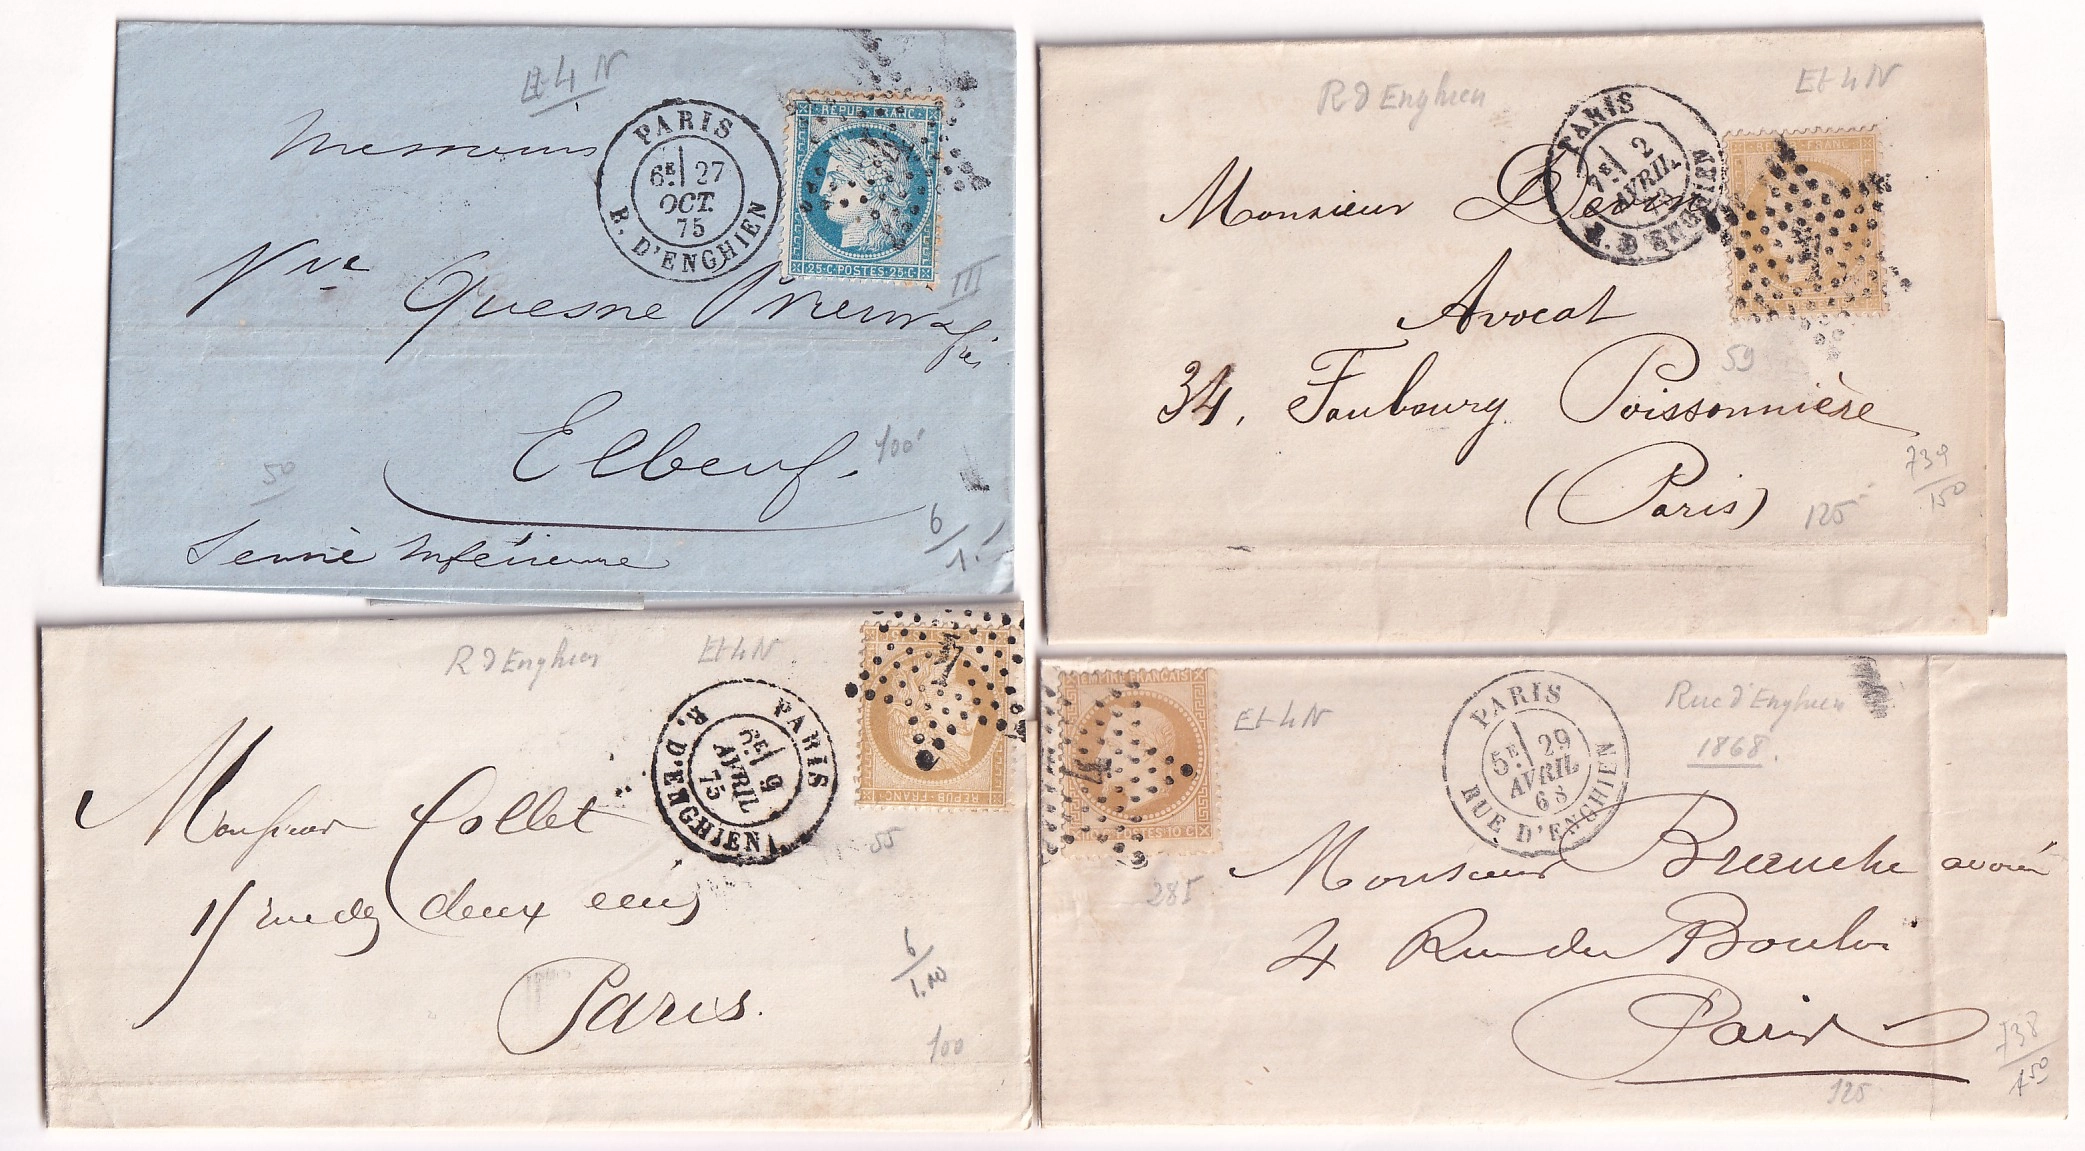 Et 4 N
PARIS
6E 27
OCT.
75
R. D'ENGHIEN
REPUB. FRANC.
25·C·POSTES·25·C
Messieurs
Vve Quesne
III
Elbeuf.
100
50
6/1.
Seine Inférieure
R d Enghien
Et 4 N
PARIS
7E 2
AVRIL
73
R. D'ENGHIEN
FRANC
Monsieur
Avocat
59
34, Faubourg Poissonnière
(Paris)
125
739/150
R d Enghien
Et 4 N
PARIS
6E 9
AVRIL
75
R. D'ENGHIEN
4
REPUB. FRANC.
55
Monsieur Collet
15 rue des deux ecus
Paris.
6/1.00
100
EMPIRE FRANÇAIS
POSTES 10 C
Et 4 N
PARIS
5E 29
AVRIL
68
RUE D'ENGHIEN
Rue d'Enghien
1868.
Monsieur Branche avoué
4 Rue du Bouloi
Paris
738/150
125